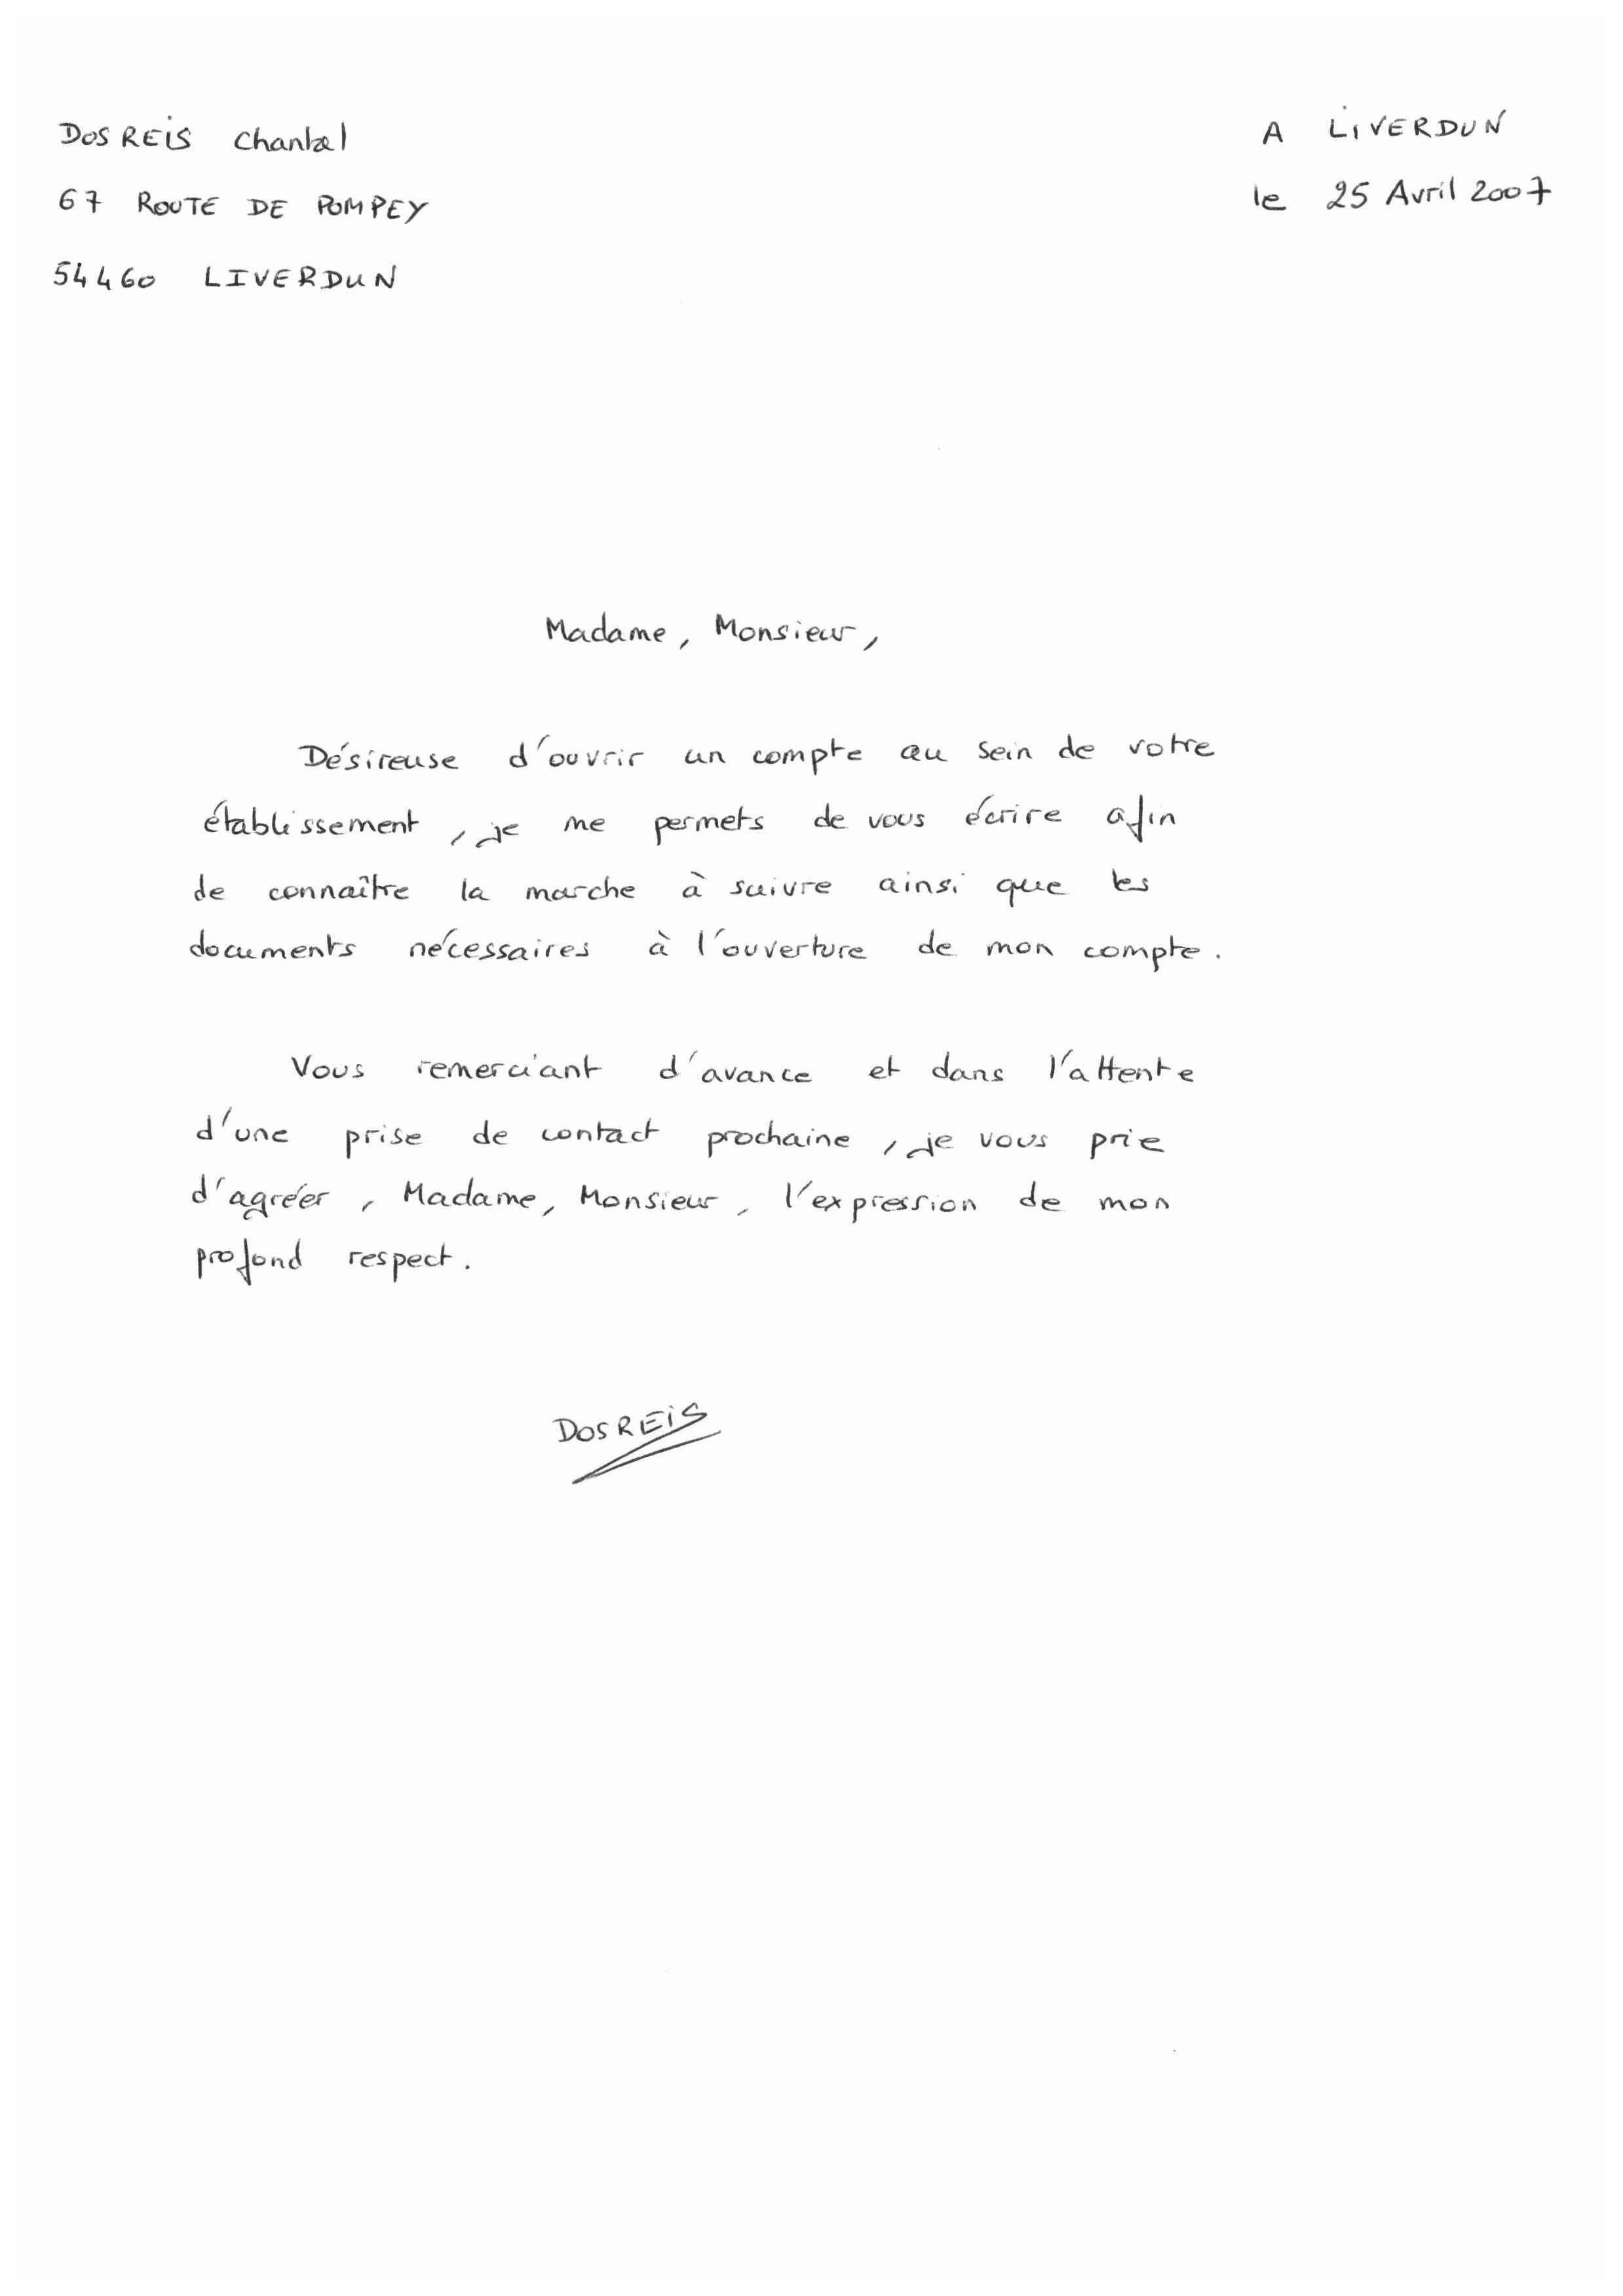 DOS REIS Chantal
67 ROUTE DE POMPEY
54460 LIVERDUN
A LIVERDUN
le 25 Avril 2007
Madame, Monsieur,
Désireuse d'ouvrir un compte au sein de votre
établissement, je me permets de vous écrire afin
de connaître la marche à suivre ainsi que les
documents nécessaires à l'ouverture de mon compte.
Vous remerciant d'avance et dans l'attente
d'une prise de contact prochaine, je vous prie
d'agréer, Madame, Monsieur, l'expression de mon
profond respect.
DOS REIS